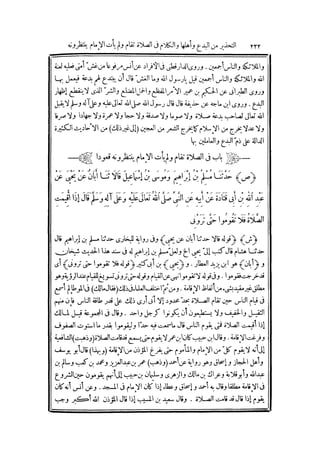 ٢٢٢ التحذير من البدع وأهلها والكلام فى الصلاة تقام ولم يأت الإمام ينتظرونه
والملائكة والناس أجمعين. وروى الدارقطنى فى الأفراد عن أنس مرفوعا من غش أمتى فعليه لعنة
الله والملائكة والناس أجمعين قيل يا رسول الله وما الغش قال أن يبتدع لهم بدعة فيعمل بها
وروى الطبرانى عن الحكم بن عمير الأمر المفظع والحمل المضلع والشر الذى لا ينقطع إظهار
البدع. وروى ابن ماجه عن حذيفة قال قال رسول الله صلى الله تعالى عليه وعلى آله وسلم لا يقبل
الله تعالى لصاحب بدعة صلاة ولا صوما ولا صدقة ولا حجا ولا عمرة ولا جهادا ولا صرفا
ولا عدلا يخرج من الإسلام كما يخرج الشعر من العجين (إلى غير ذلك) من الأحاديث الكثيرة
الدالة على ذم البدع والعاملين بها
باب فى الصلاة تقام ولم يأت الإمام ينتظرونه قعودا
(ص) حدثنا مسلم بن إبراهيم وموسى بن إسماعيل قالا ثنا أبان عن يحيى عن
عبد الله بن أبى قتادة عن أبيه عن النبى صلى الله تعالى عليه وعلى آله وسلم قال إذا أقيمت
الصلاة فلا تقوموا حتى ترونى
(ش) (قوله قالا حدثنا أبان عن يحيى) وفى رواية للبخارى حدثنا مسلم بن إبراهيم قال
حدثنا هشام قال كتب إلى يحيى الخ ولعل لمسلم بن إبراهيم فى سند هذا الحديث شيخان
و (أبان) هو ابن يزيد العطار. و (يحيى) بن أبى كثير (قوله فلا تقوموا حتى ترونى) أى
قد خرجت فقوموا. وفى قوله لا تقوموا نهى عن القيام وقوله حتى ترونى تسويغ للقيام عند الرؤية وهو
مطلق غير مقيد بشىء من ألفاظ الإقامة. ومن ثم اختلف العلماء فى ذلك (فقال مالك) فى الموطأ لم أسمع
فى قيام الناس حين تقام الصلاة بحد محدود إلا أنى أرى ذلك على قدر طاقة الناس فإن منهم
الثقيل والخفيف ولا يستطيعون أن يكونوا كرجل واحد. وقال فى المجموعة قيل لمالك
إذا أقيمت الصلاة فمتى يقوم الناس قال ما سمعت فيه حدا وليقوموا بقدر ما استوت الصفوف
وفرغت الإقامة. وقال ابن حبيب كان ابن عمر لا يقوم حتى يسمع قد قامت الصلاة (وذهبت) الشافعية
إلى أنه لا يقوم كل من الإمام والمأموم حتى يفرغ المؤذن من الإقامة (وبهذا) قال أبو يوسف
وأهل الحجاز و إسحاق وهو رواية عن أحمد (وذهب) عمر بن عبد العزيز ومحمد بن كعب وسالم بن
عبد الله وأبو قلابة وعراك بن مالك والزهرى وسليمان بن حبيب إلى أنهم يقومون حين الشروع
فى الإقامة مطلقا وقال به أحمد و إسحاق وعطاء إذا كان الإمام فى المسجد. وعن أنس أنه كان
يقوم إذا قال قد قامت الصلاة. وقال سعيد بن المسيب إذا قال المؤذن الله أكبر وجب